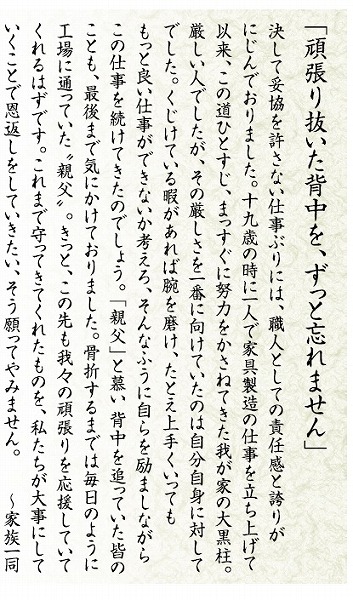 「頑張り抜いた背中を、ずっと忘れません」
決して妥協を許さない仕事ぶりには、職人としての責任感と誇りが
にじんでおりました。十九歳の時に一人で家具製造の仕事を立ち上げて
以来、この道ひとすじ、まっすぐに努力をかさねてきた我が家の大黒柱。
厳しい人でしたが、その厳しさを一番に向けていたのは自分自身に対して
でした。くじけている暇があれば腕を磨け、たとえ上手くいっても
もっと良い仕事ができないか考えろ、そんなふうに自らを励ましながら
この仕事を続けてきたのでしょう。「親父」と慕い 背中を追っていた皆の
ことも、最後まで気にかけておりました。骨折するまでは毎日のように
工場に通っていた〝親父〟。きっと、この先も我々の頑張りを応援していて
くれるはずです。これまで守ってきてくれたものを、私たちが大事にして
いくことで恩返しをしていきたい、そう願ってやみません。
～家族一同